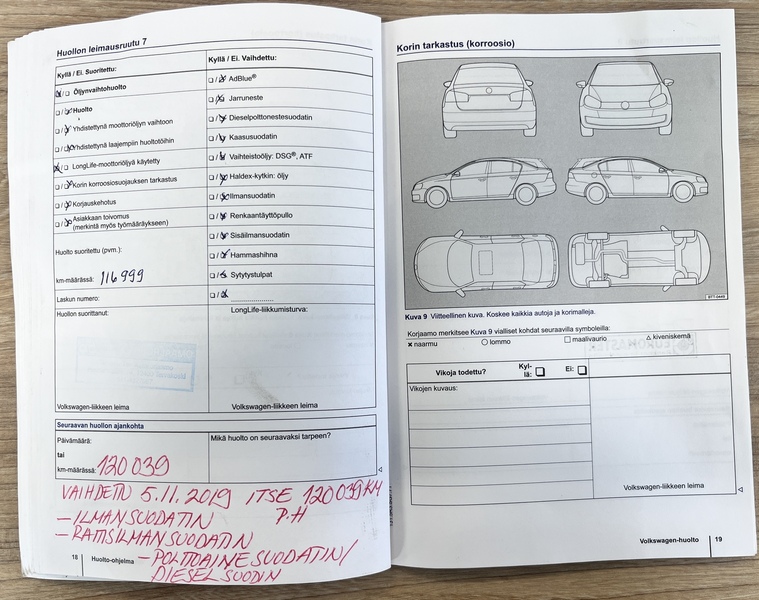 Huollon leimausruutu 7
Kyllä / Ei. Suoritettu:
Öljynvaihtohuolto
Huolto
Yhdistettynä moottoriöljyn vaihtoon
Yhdistettynä laajempiin huoltotöihin
LongLife-moottoriöljyä käytetty
Korin korroosiosuojauksen tarkastus
Korjauskehotus
Asiakkaan toivomus
(merkintä myös työmääräykseen)
Huolto suoritettu (pvm.):
km-määrässä: 116 999
Laskun numero:
Huollon suorittanut:
Volkswagen-liikkeen leima
Kyllä / Ei. Vaihdettu:
AdBlue®
Jarruneste
Dieselpolttonestesuodatin
Kaasusuodatin
Vaihteistoöljy: DSG®, ATF
Haldex-kytkin: öljy
Ilmansuodatin
Renkaantäyttöpullo
Sisäilmansuodatin
Hammashihna
Sytytystulpat
LongLife-liikkumisturva:
Volkswagen-liikkeen leima
Seuraavan huollon ajankohta
Päivämäärä:
tai
km-määrässä: 120 039
Mikä huolto on seuraavaksi tarpeen?
VAIHDETTU 5.11.2019 ITSE 120 039 KM
P.H
— ILMANSUODATIN
— RAITISILMANSUODATIN
— POLTTOAINESUODATIN/
DIESEL SUODIN
18 Huolto-ohjelma
Korin tarkastus (korroosio)
Kuva 9 Viitteellinen kuva. Koskee kaikkia autoja ja korimalleja.
Korjaamo merkitsee Kuva 9 vialliset kohdat seuraavilla symboleilla:
× naarmu ○ lommo □ maalivaurio △ kiveniskemä
Vikoja todettu? Kyl-
lä: □ Ei: □
Vikojen kuvaus:
Volkswagen-liikkeen leima
Volkswagen-huolto 19